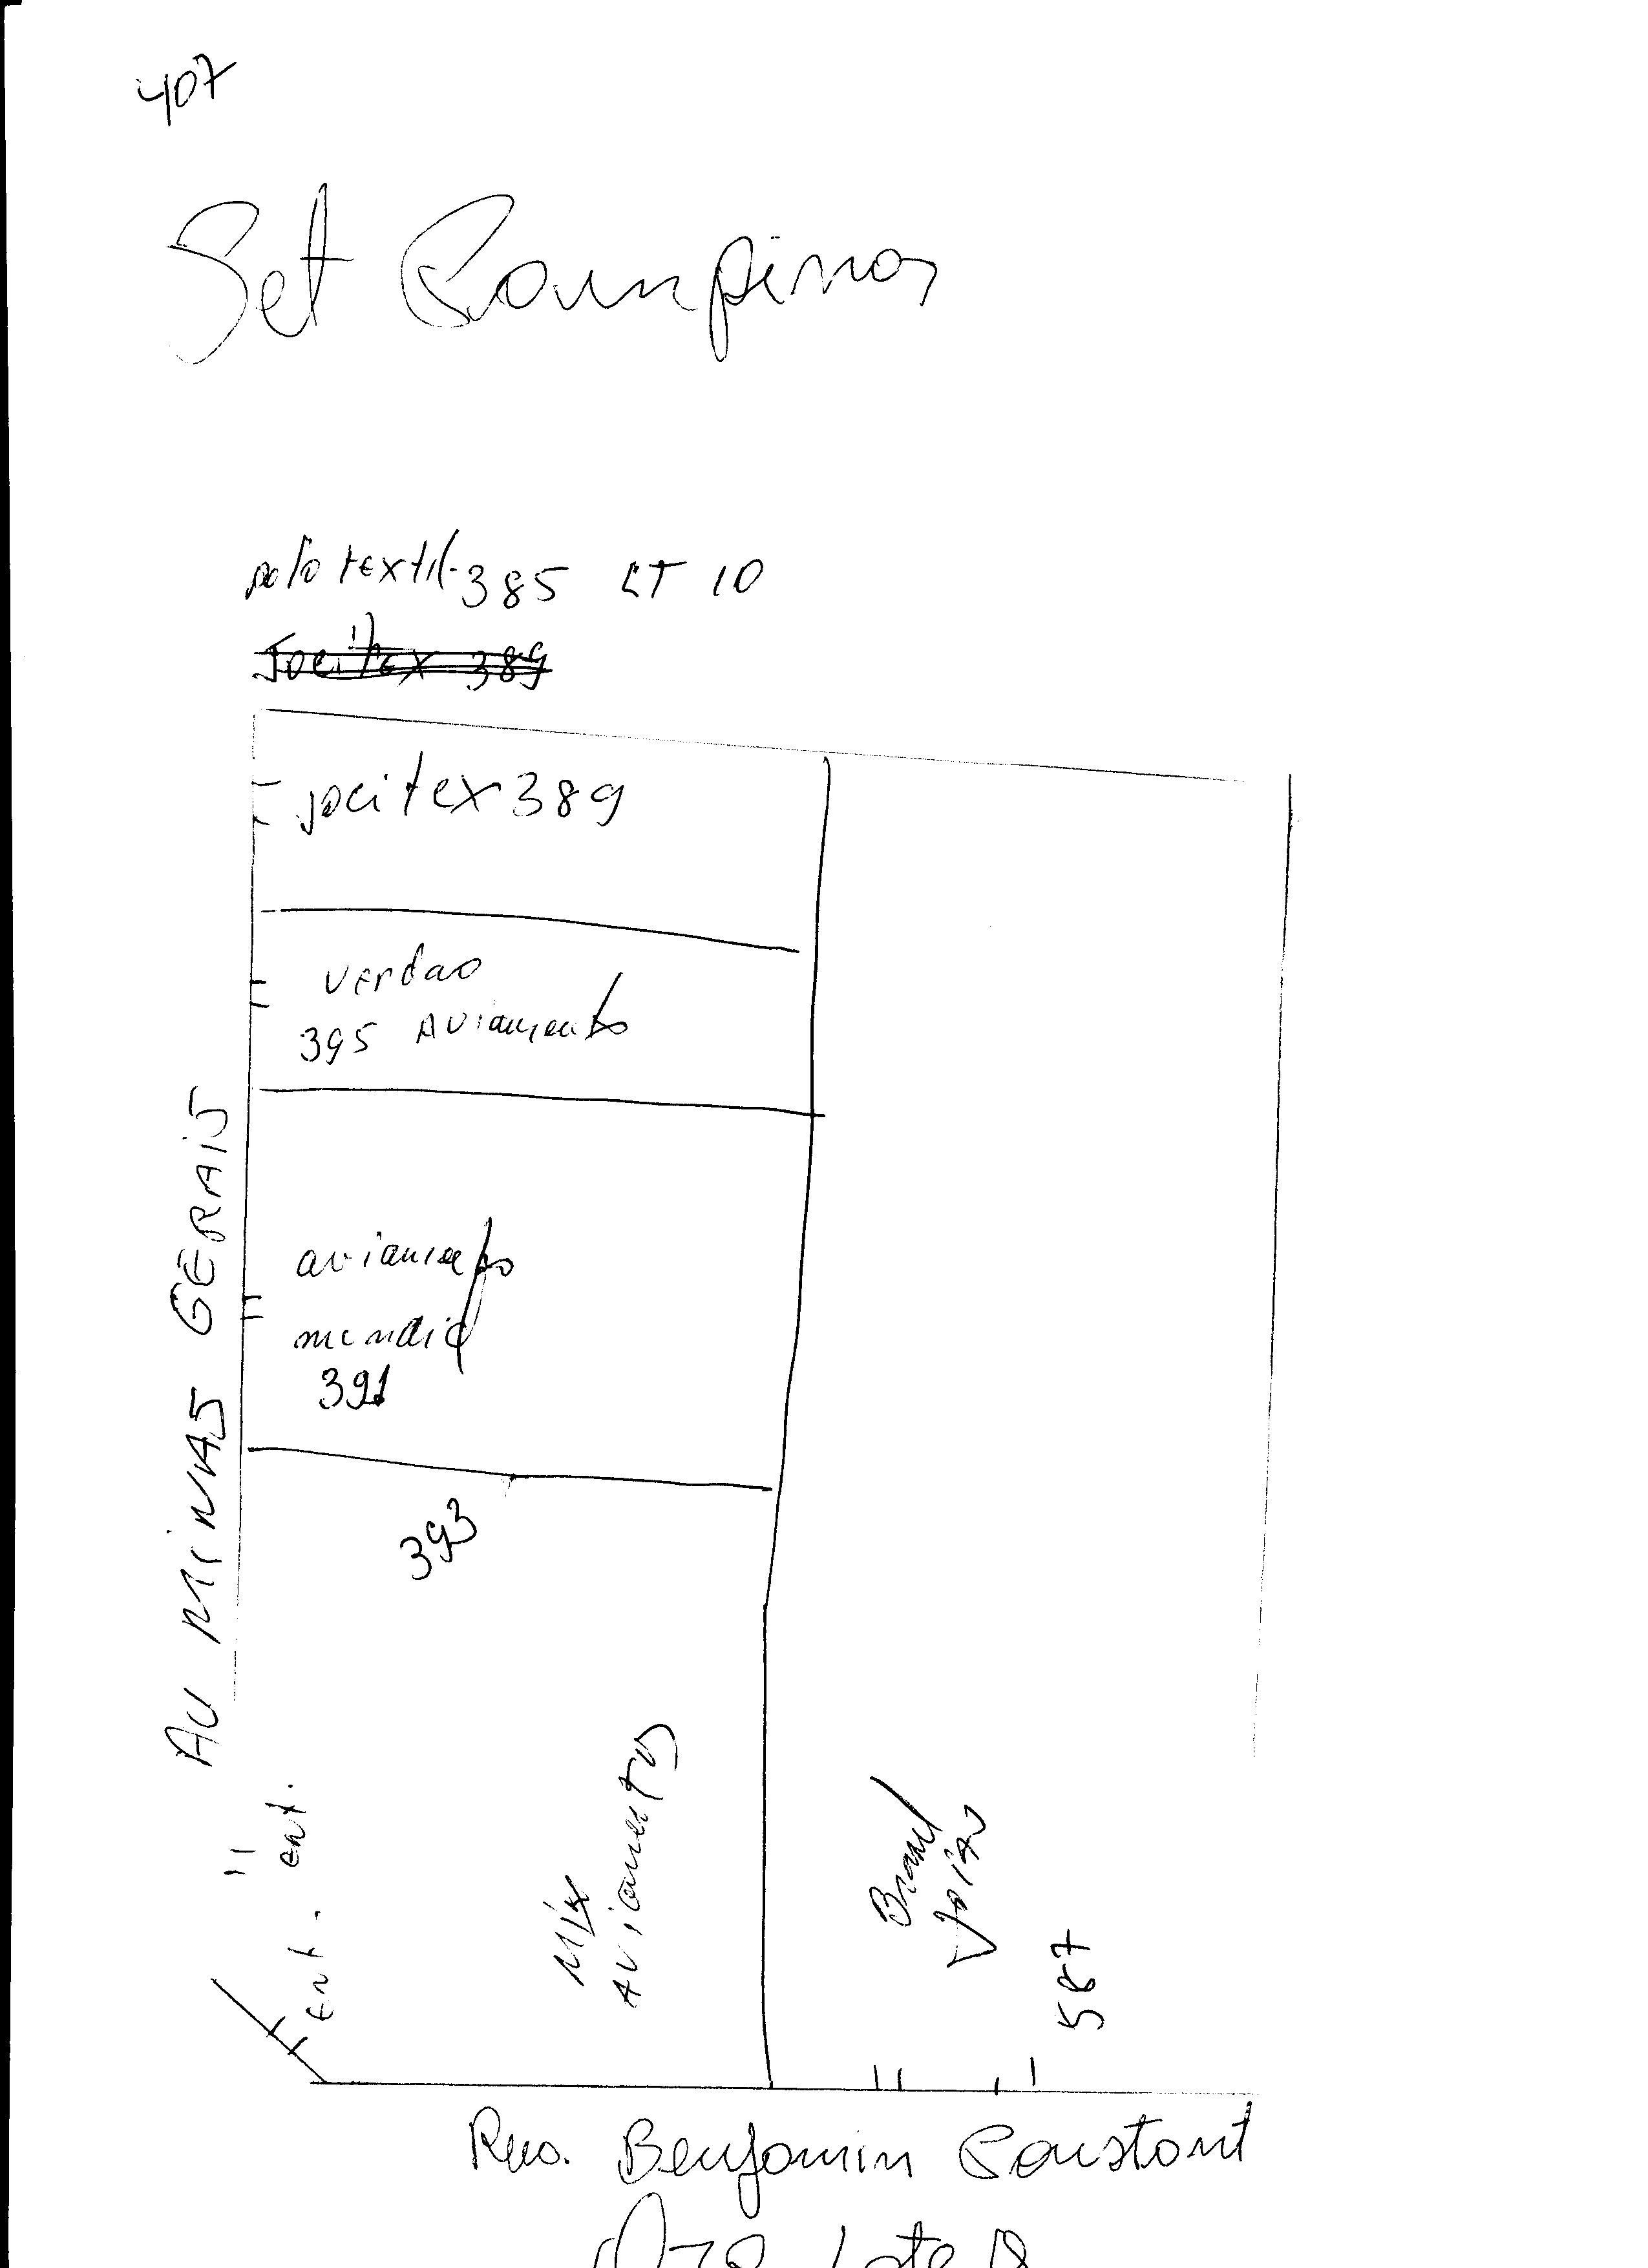 407
Set Campinas
polo textil 385 LT 10
Jocitex 389
jocitex 389
verdao
395 Aviamento
aviamento
mundial
391
393
AV MINAS GERAIS
ent.
ent.
Mix
Aviamentos
Brasil
587
Rua. Benjamin Constant
Lote